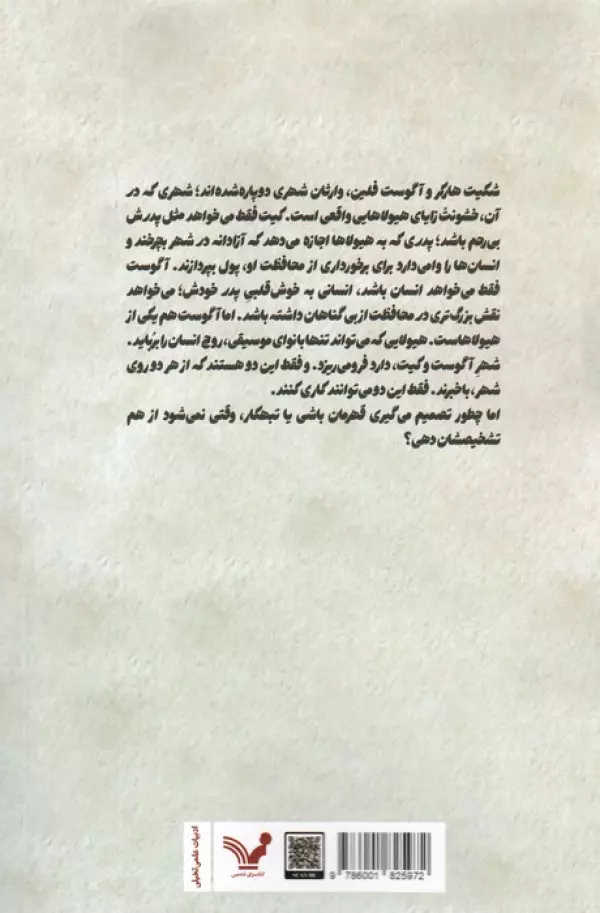 شکیت هارکر و آگوست فلین، وارثان شهری دوپاره‌شده‌اند؛ شهری که در
آن، خشونت زایای هیولاهایی واقعی است. کیت فقط می‌خواهد مثل پدرش
بی‌رحم باشد؛ پدری که به هیولاها اجازه می‌دهد که آزادانه در شهر بچرخند و
انسان‌ها را وامی‌دارد برای برخورداری از محافظت او، پول بپردازند. آگوست
فقط می‌خواهد انسان باشد، انسانی به خوش‌قلبیِ پدر خودش؛ می‌خواهد
نقش بزرگ‌تری در محافظت از بی‌گناهان داشته باشد. اما آگوست هم یکی از
هیولاهاست. هیولایی که می‌تواند تنها با نوای موسیقی، روح انسان را برُباید.
شهرِ آگوست و کیت، دارد فرومی‌ریزد. و فقط این دو هستند که از هر دو روی
شهر، باخبرند. فقط این دو می‌توانند کاری کنند.
اما چطور تصمیم می‌گیری قهرمان باشی یا تبهکار، وقتی نمی‌شود از هم
تشخیصشان دهی؟
ادبیات علمی تخیلی
کتابسرای تندیس
9 786001 825972